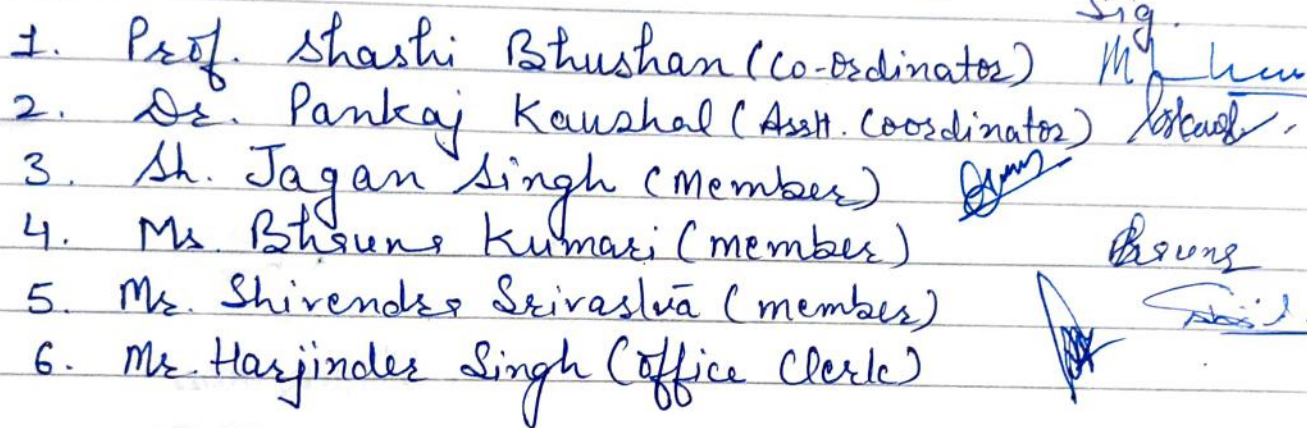 Sig.
1. Prof. Shashi Bhushan (Co-ordinator)
2. Dr. Pankaj Kaushal (Asstt. Coordinator)
3. Sh. Jagan Singh (Member)
4. Ms. Kumari (member)
5. Mr. Shivendra Srivastva (member)
6. Mr. Harjinder Singh (Office Clerk)